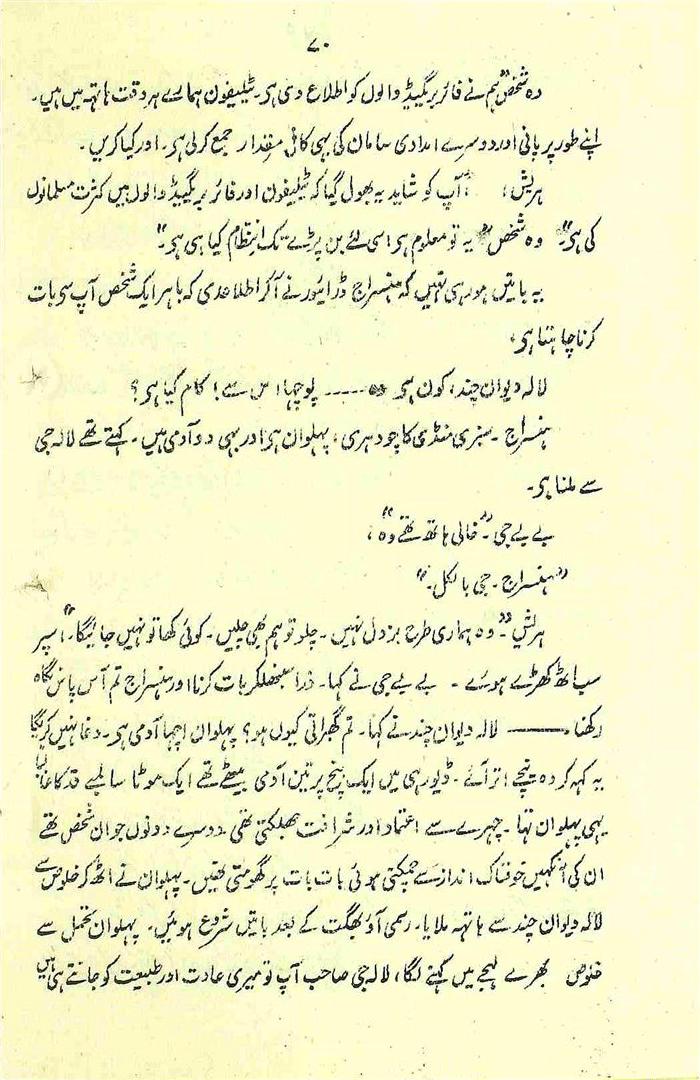 ۷۰
وہ شخص "ہم نے فائر بریگیڈ والوں کو اطلاع دی ہر۔ ٹیلیفون ہمارے ہر وقت ہاتہہ میں ہیں۔
اپنے طور پر پانی اور دوسرے امدادی سامان کی بہی کافی مقدار جمع کرلی ہر۔ اور کیا کریں۔
ہریش، "آپ کو شاید یہ بھول گیا کہ ٹیلیفون اور فائر بریگیڈ والوں میں کثرت مسلمانوں
کی ہر" وہ شخص "یہ تو معلوم ہر اسی لئے بن پڑے تک انتظام کیا ہی ہر۔"
یہ باتیں ہو رہی تہیں کہ ہنسراج ڈرائیور نے آکر اطلاعدی کہ باہر ایک شخص آپ سے بات
کرنا چاہتا ہر،
لالہ دیوان چند، کون ہر وہ ـــــ پوچہا اس سے! کام کیا ہر؟
ہنسراج ۔ سبزی منڈی کا چودہری، پہلوان ہر اور بہی دو آدمی ہیں۔ کہتے تھے لالہ جی
سے ملنا ہر۔
بے بے جی۔ "خالی ہاتھ تھے وہ"،
"ہنسراج ۔ جی بالکل۔"
ہریش "۔ وہ ہماری طرح بزدل نہیں۔ چلو تو ہم بھی چلیں۔ کوئی کھا تو نہیں جائیگا"۔ اسپر
سب اٹھ کھڑے ہوئے ۔ بے بے جی نے کہا۔ ذرا سنبھلکر بات کرنا اور ہنسراج تم آس پاس نگاہ
رکھنا، ـــــ لالہ دیوان چند نے کہا۔ تم گھبراتی کیوں ہو؟ پہلوان اچہا آدمی ہر۔ دغا نہیں کریگا
یہ کہہ کر وہ نیچے اتر آئے ۔ ڈیورہی میں ایک بنچ پر تین آدمی بیٹھے تھے ایک موٹا سا لمبے قد کا غالباً
یہی پہلوان تہا ۔ چہرے سے اعتماد اور شرافت جھلکتی تھی دوسرے دونوں جوان شخص تھے
ان کی آنکہیں خوفناک انداز سے چمکتی ہوئی بات بات پر گھومتی تہیں۔ پہلوان نے اٹھ کر خلوص سے
لالہ دیوان چند سے ہاتہہ ملایا۔ رسمی آؤ بھگت کے بعد باتیں شروع ہوئیں۔ پہلوان تحمل سے
خلوص بھرے لہجے میں کہنے لگا، لالہ جی صاحب آپ تو میری عادت اور طبیعت کو جانتے ہی ہیں